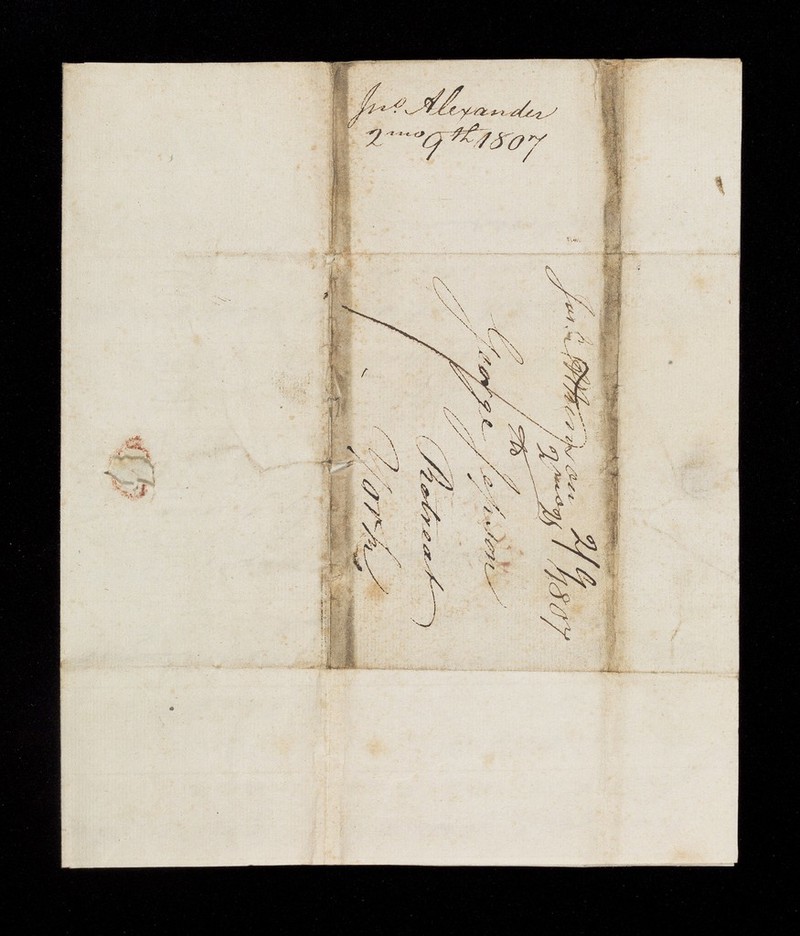 Jno. Alexander
2mo 9th 1807
2/9
1807
To
George Jepson
Retreat
York